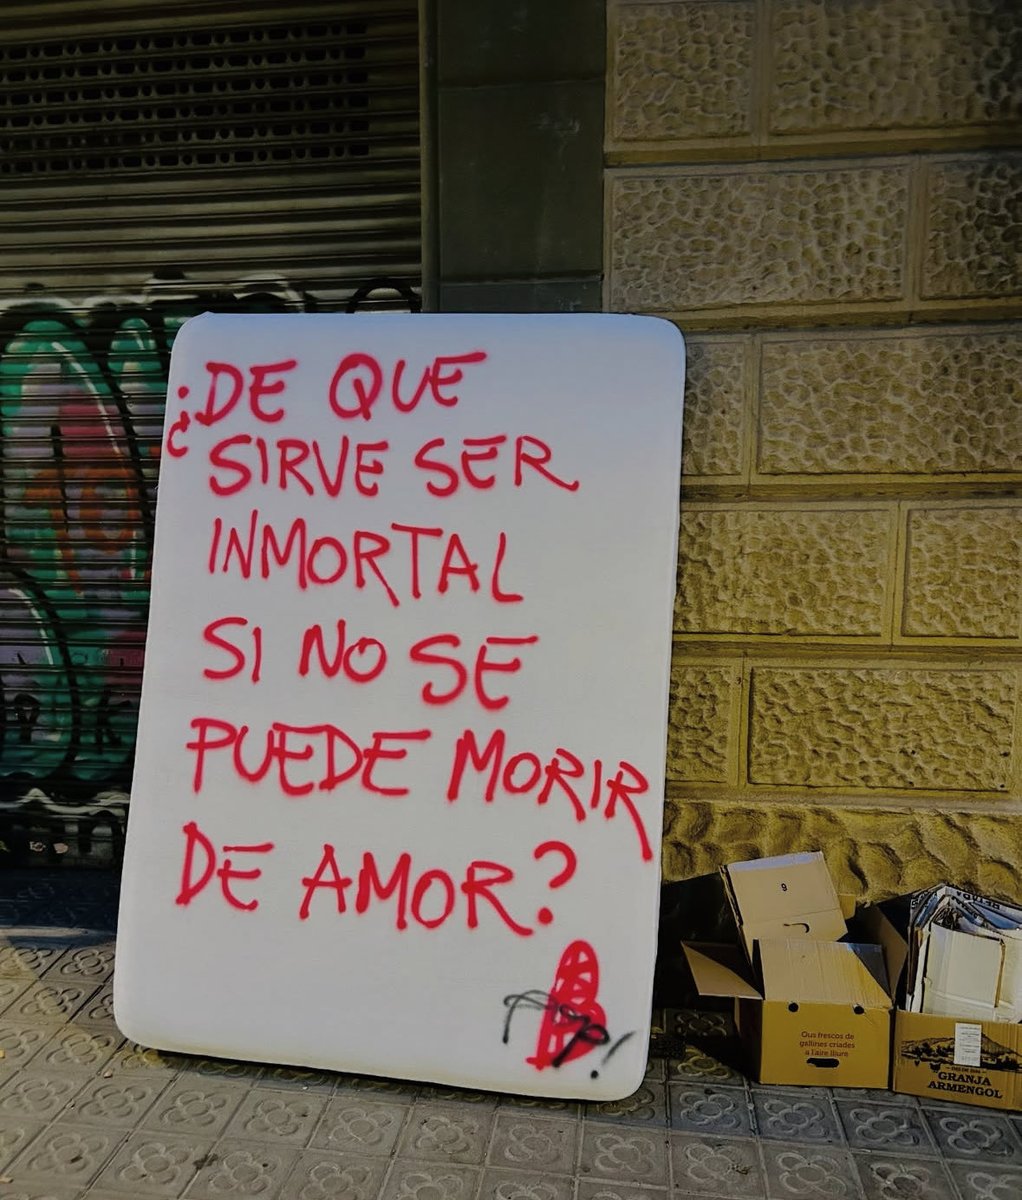 ¿DE QUE
SIRVE SER
INMORTAL
SI NO SE
PUEDE MORIR
DE AMOR?
9
Ous frescos de
gallines criades
a l'aire lliure
GRANJA
ARMENGOL